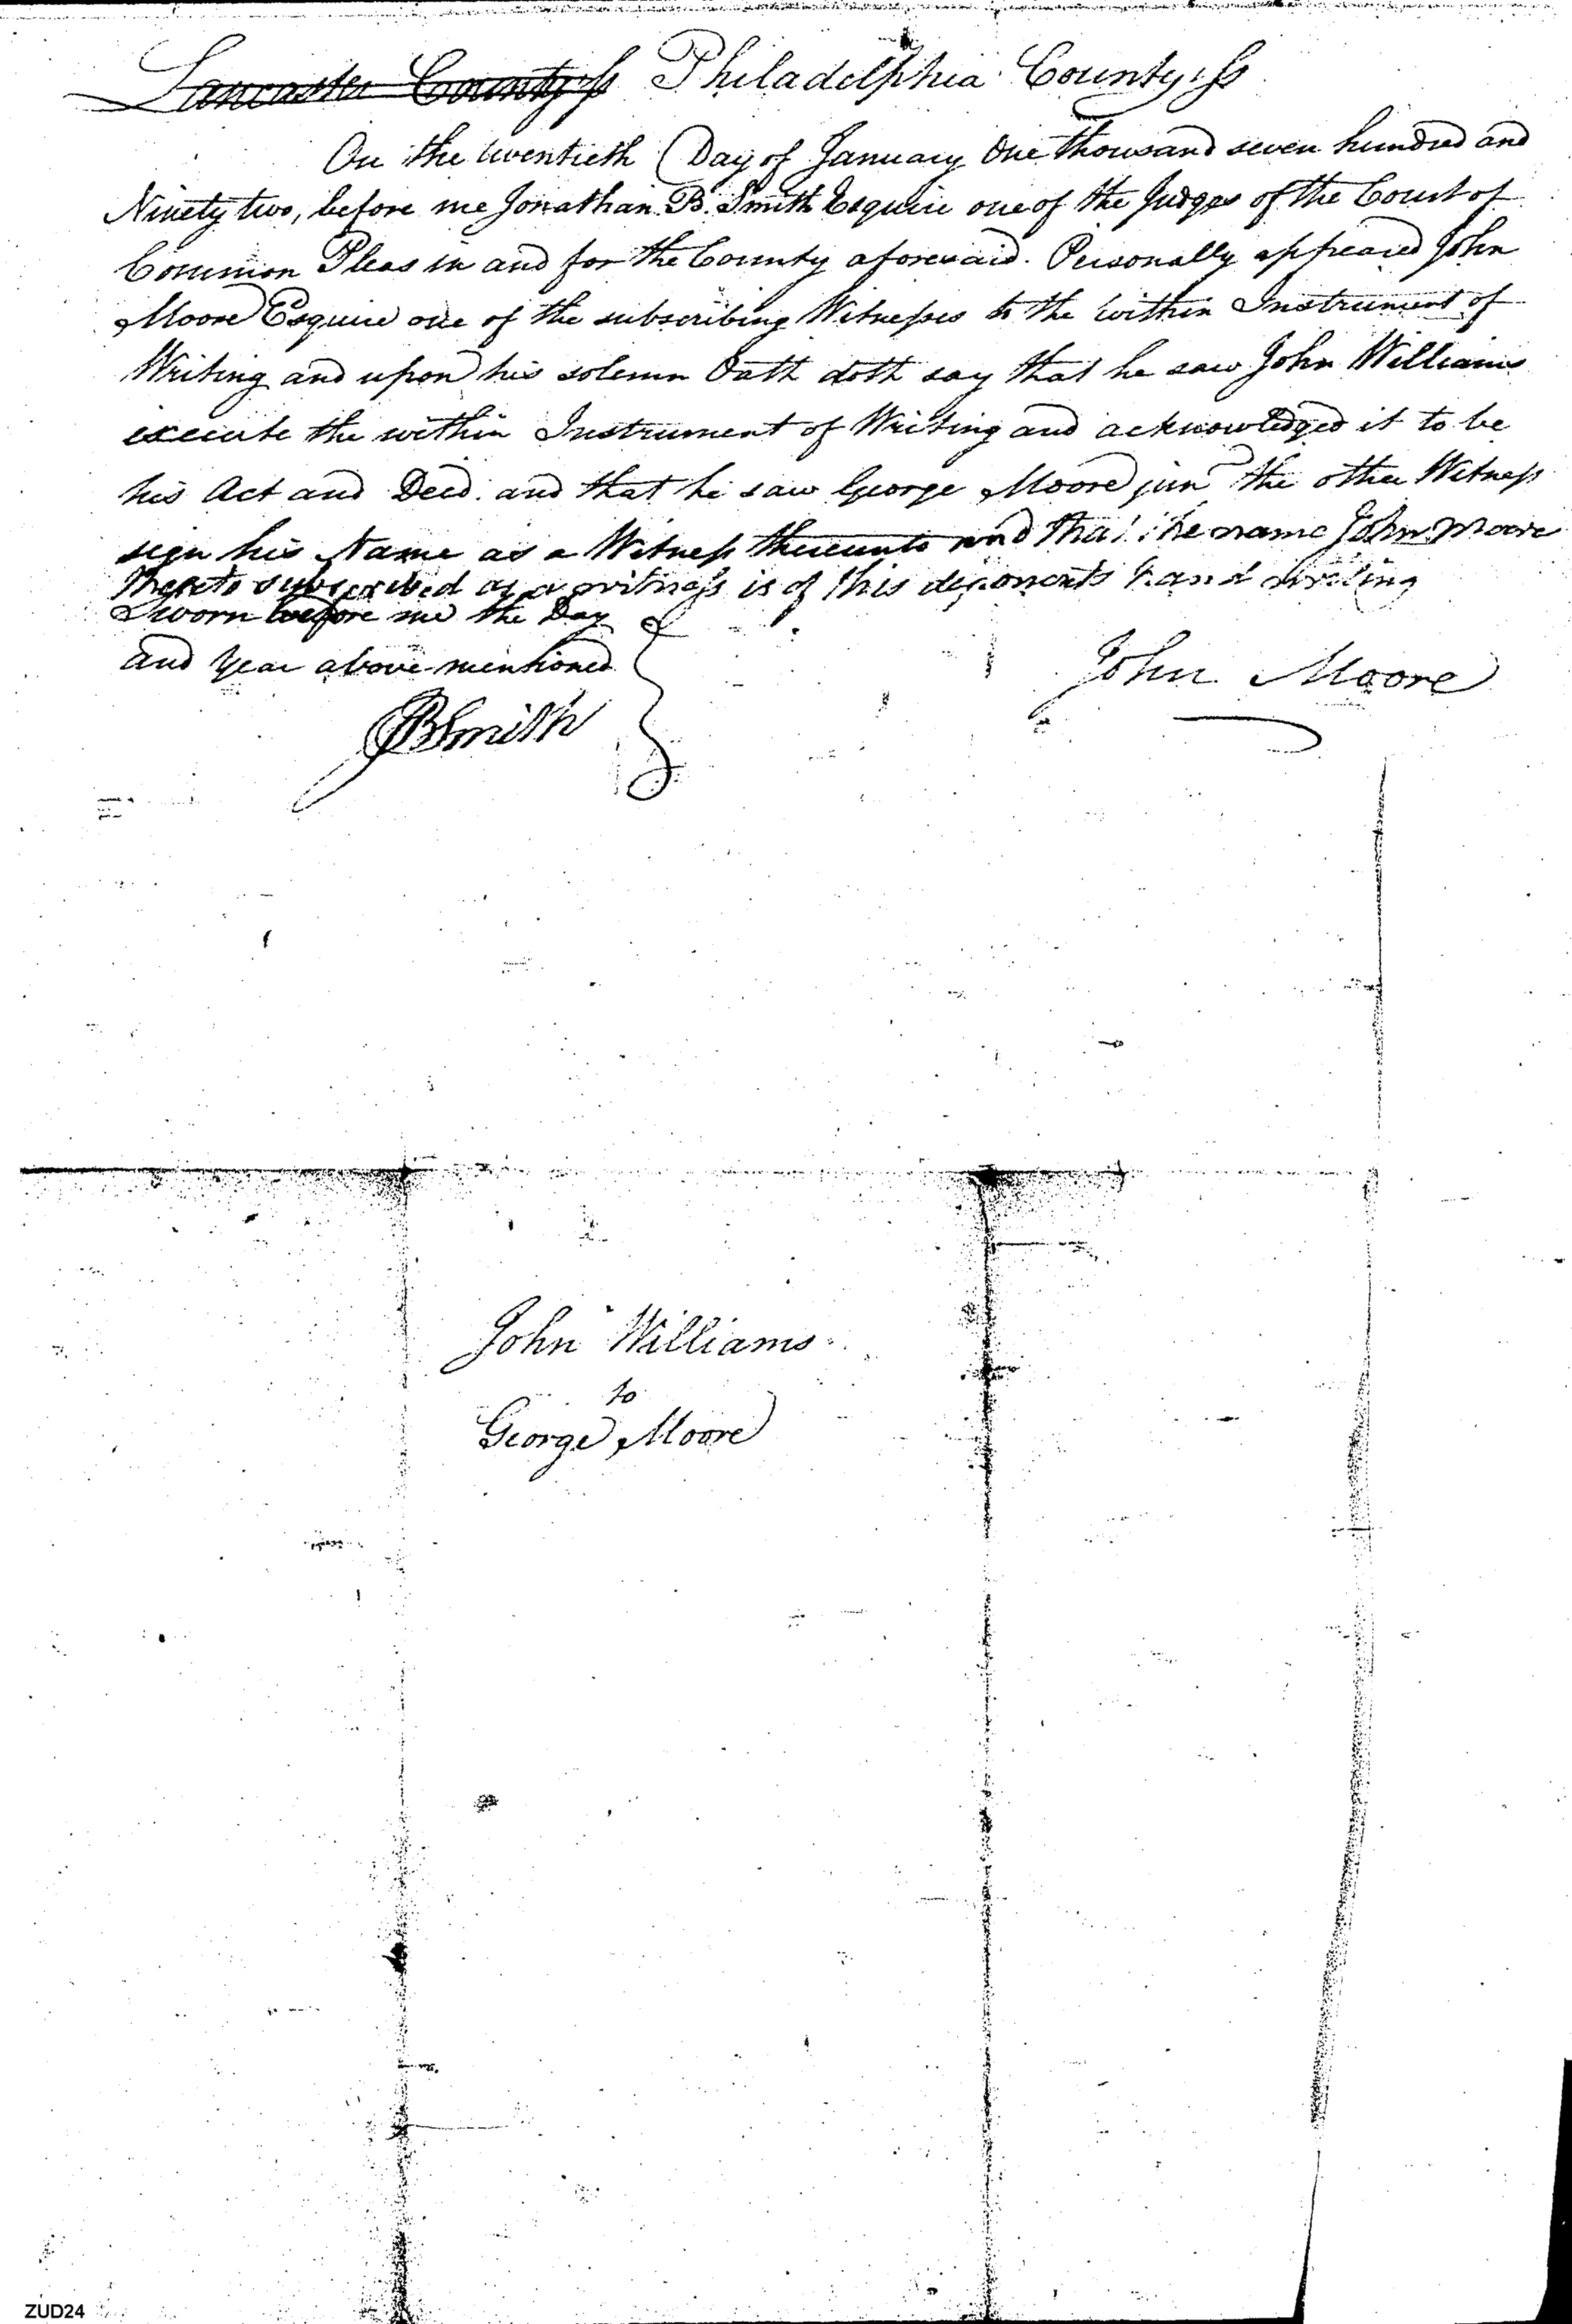 Lancaster County ss Philadelphia County ss
On the twentieth Day of January One Thousand seven hundred and
Ninety two, before me Jonathan B. Smith Esquire one of the Judges of the Court of
Common Pleas in and for the County aforesaid. Personally appeared John
Moore Esquire one of the subscribing Witnesses to the within Instrument of
Writing and upon his solemn Oath doth say that he saw John Williams
execute the within Instrument of Writing and acknowledged it to be
his Act and Deed. and that he saw George Moore junr the other Witness
sign his Name as a Witness thereunto and that the name John Moore
thereto subscribed as a witness is of this deponents hand writing
Sworn before me the Day
and Year above mentioned
John Moore
JBSmith
John Williams
to
George Moore
ZUD24